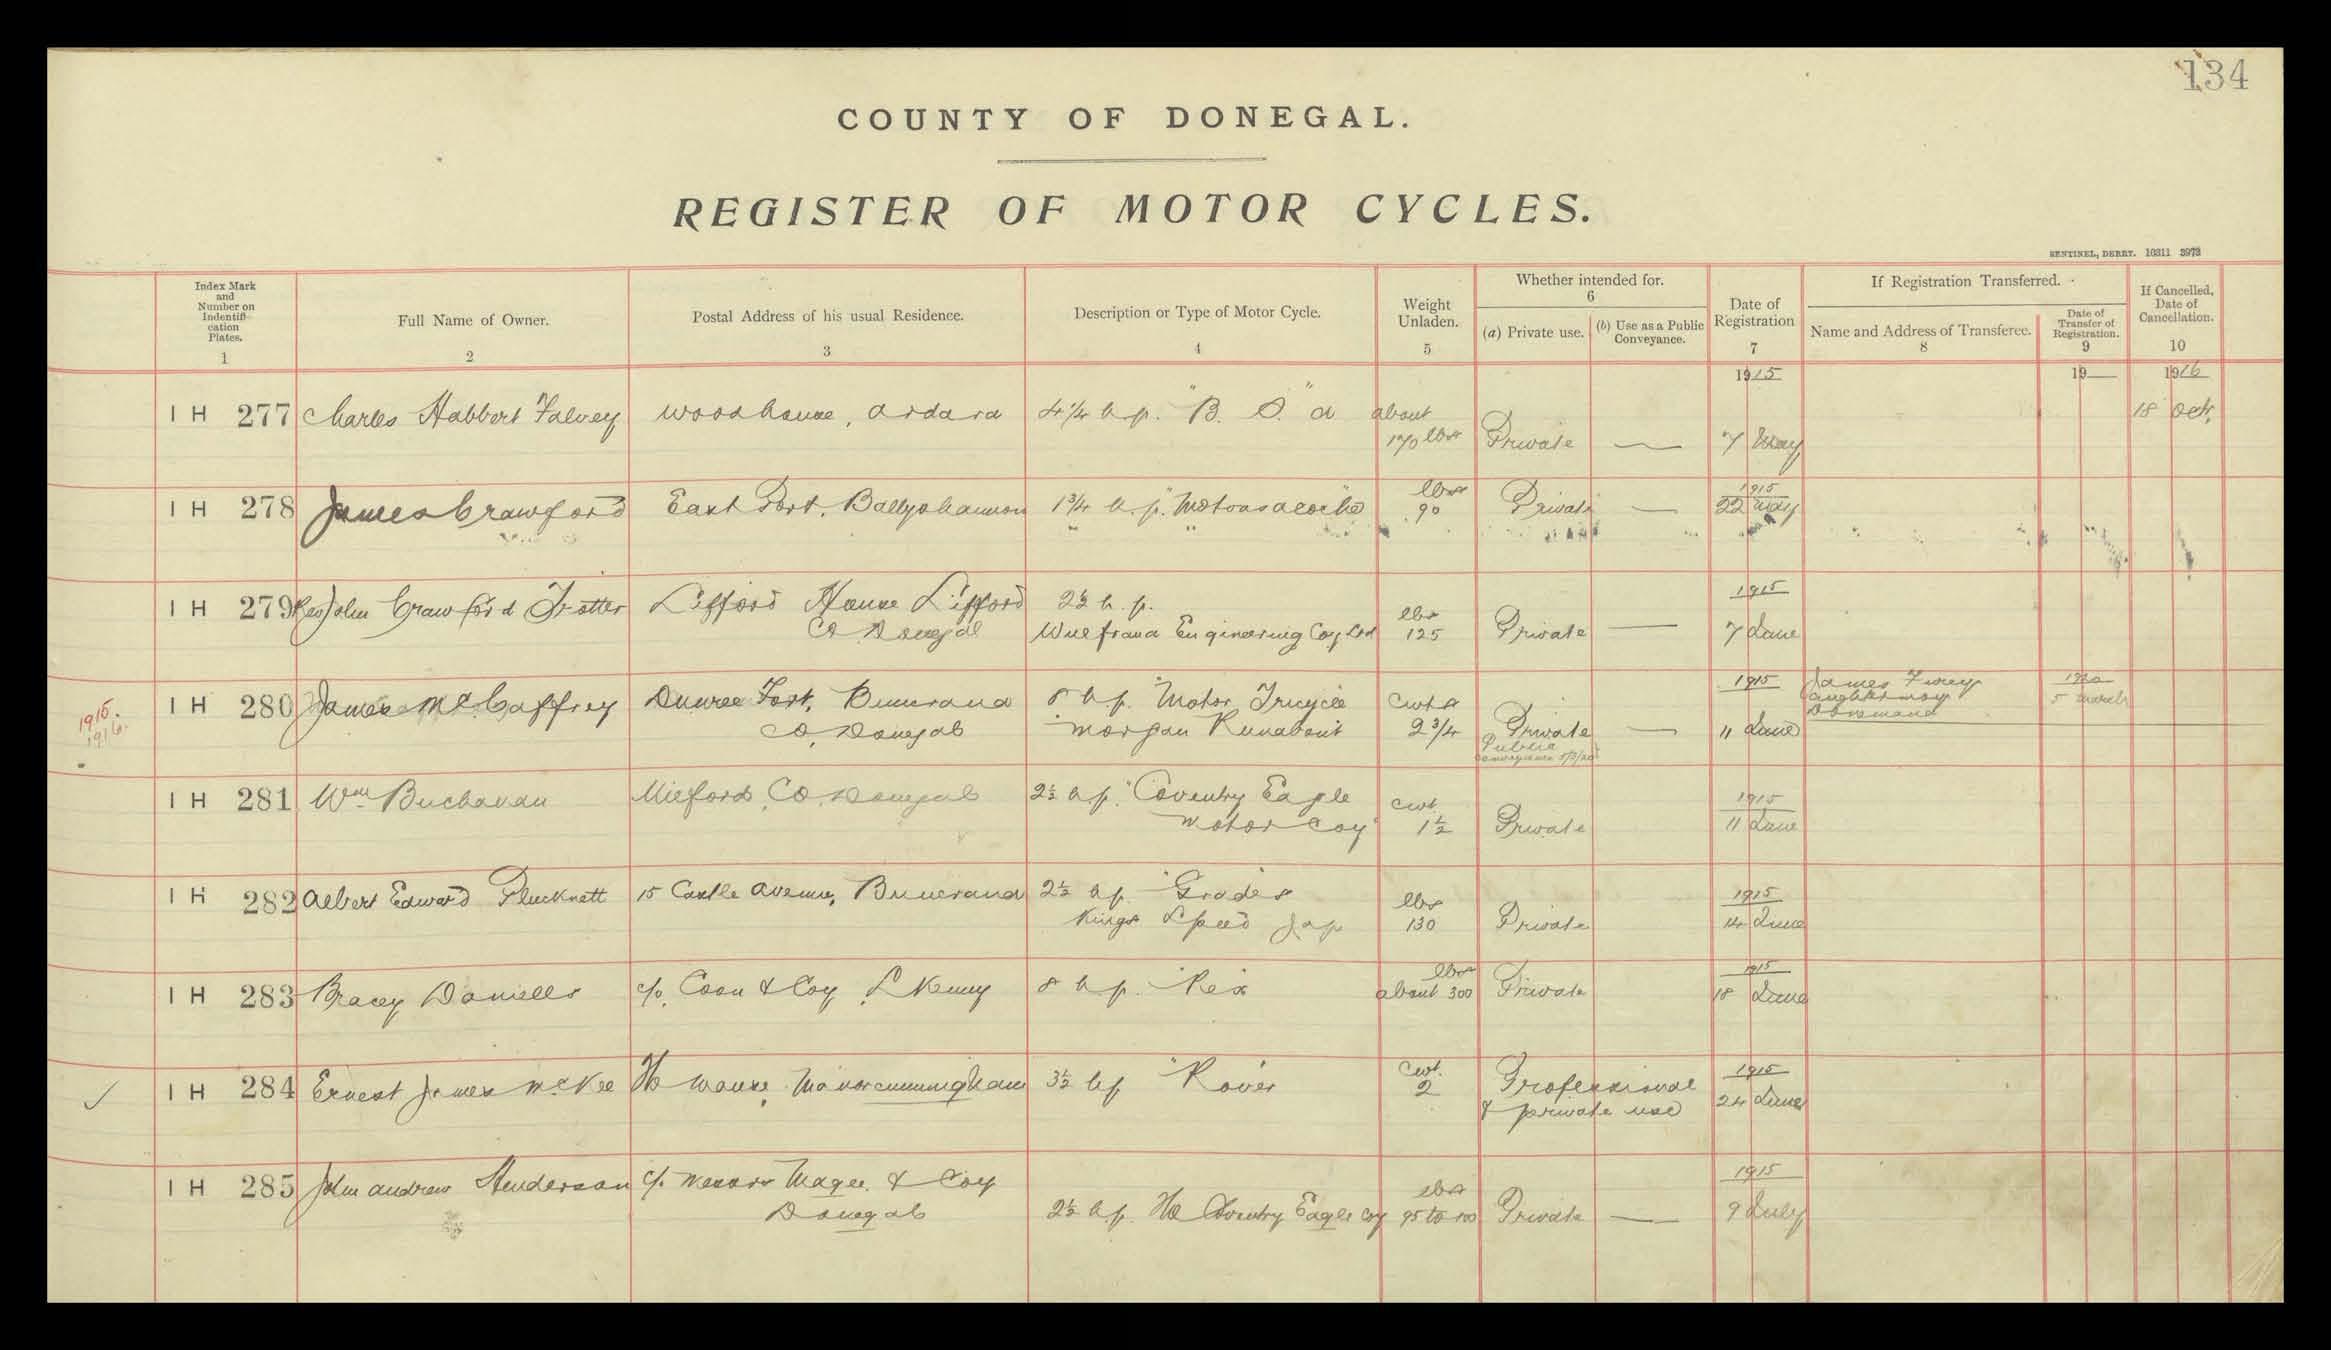 134
COUNTY OF DONEGAL.
REGISTER OF MOTOR CYCLES.
SENTINEL, DERRY. 10311 3973
Index Mark and Number on Indentifi-cation Plates. 1
Full Name of Owner. 2
Postal Address of his usual Residence. 3
Description or Type of Motor Cycle. 4
Weight Unladen. 5
Whether intended for. 6
(a) Private use.
(b) Use as a Public Conveyance.
Date of Registration 7
If Registration Transferred.
Name and Address of Transferee. 8
Date of Transfer of Registration. 9
If Cancelled, Date of Cancellation. 10
1915 19 1916
I H 277 Charles Habbert Falvey Woodhouse, Ardara 4¼ h.p. "B. S." A about 18 Oct.
170 lbs Private 7 May
I H 278 James Crawford East Port, Ballyshannon 1¾ h.p. "Motorsacoche" lbs 90 Private 1915 22 May
I H 279 Rev John Crawford Trotter Lifford House Lifford 2½ h.p. 1915
Co Donegal Wulfrana Engineering Coy Ltd lbs 125 Private 7 June
1915. 1916.
I H 280 James McCaffrey Dunree Fort, Buncrana 8 h.p. "Motor Tricycle cwts 1915 James
Co. Donegal Morgan Runabout 2¾ Private 11 June 1920 5 March
Public conveyance 5/3/20
I H 281 Wm Buchanan Milford, Co. Donegal 2½ h.p. "Coventry Eagle cwt. 1915
Motor Coy" 1½ Private 11 June
I H 282 Albert Edward Plucknett 15 Castle Avenue, Buncrana 2½ h.p. "Grade's lbs 1915
Kings Speed Jap 130 Private 14 June
I H 283 Bracey Daniells c/o. Coon & Coy, L'Kenny 8 h.p. "Rex lbs about 300 Private 1915 18 June
I H 284 Ernest James McKee The Manse, Manorcunningham 3½ hp "Rover cwt. 2 Professional 1915
& private use 24 June
I H 285 John Andrew Henderson c/o Messrs Magee & Coy 1915
Donegal 2½ h.p. The Coventry Eagle Coy lbs 95 to 100 Private 9 July